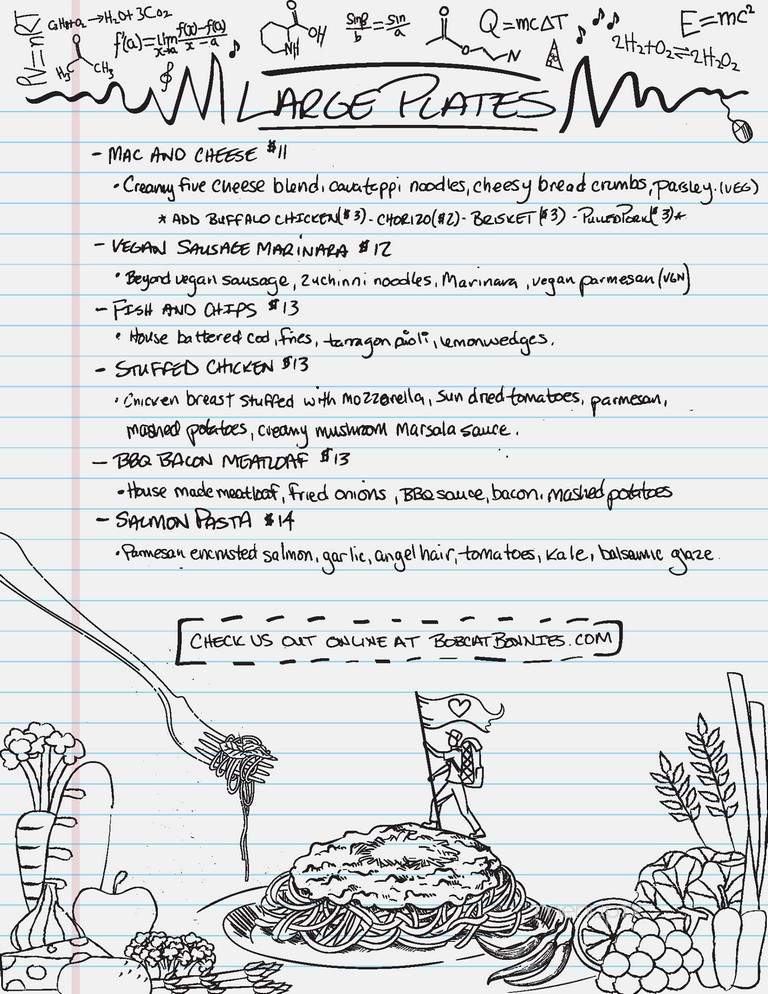 C₆H₈+O₂ → H₂O + 3CO₂
f'(a)=lim x→a f(x)-f(a) / x-a
OH
NH
sinβ/b = sin/a
O
O
N
Q=mcΔT
E=mc²
2H₂+O₂⇌2H₂O₂
O
H₃C
CH₃
LARGE PLATES
- MAC AND CHEESE $11
• Creamy five cheese blend, cavatappi noodles, cheesy bread crumbs, parsley. (VEG)
* ADD BUFFALO CHICKEN($3) - CHORIZO($2) - BRISKET($3) - PULLED PORK($3)*
- VEGAN SAUSAGE MARINARA $12
• Beyond vegan sausage, zuchinni noodles, Marinara, vegan parmesan (VGN)
- FISH AND CHIPS $13
• House battered cod, fries, tarragon aioli, lemon wedges.
- STUFFED CHICKEN $13
• Chicken breast stuffed with mozzarella, sun dried tomatoes, parmesan,
mashed potatoes, creamy mushroom Marsala sauce.
- BBQ BACON MEATLOAF $13
• House made meatloaf, fried onions, BBQ sauce, bacon, mashed potatoes
- SALMON PASTA $14
• Parmesan encrusted salmon, garlic, angel hair, tomatoes, kale, balsamic glaze.
CHECK US OUT ONLINE AT BOBCATBONNIES.COM